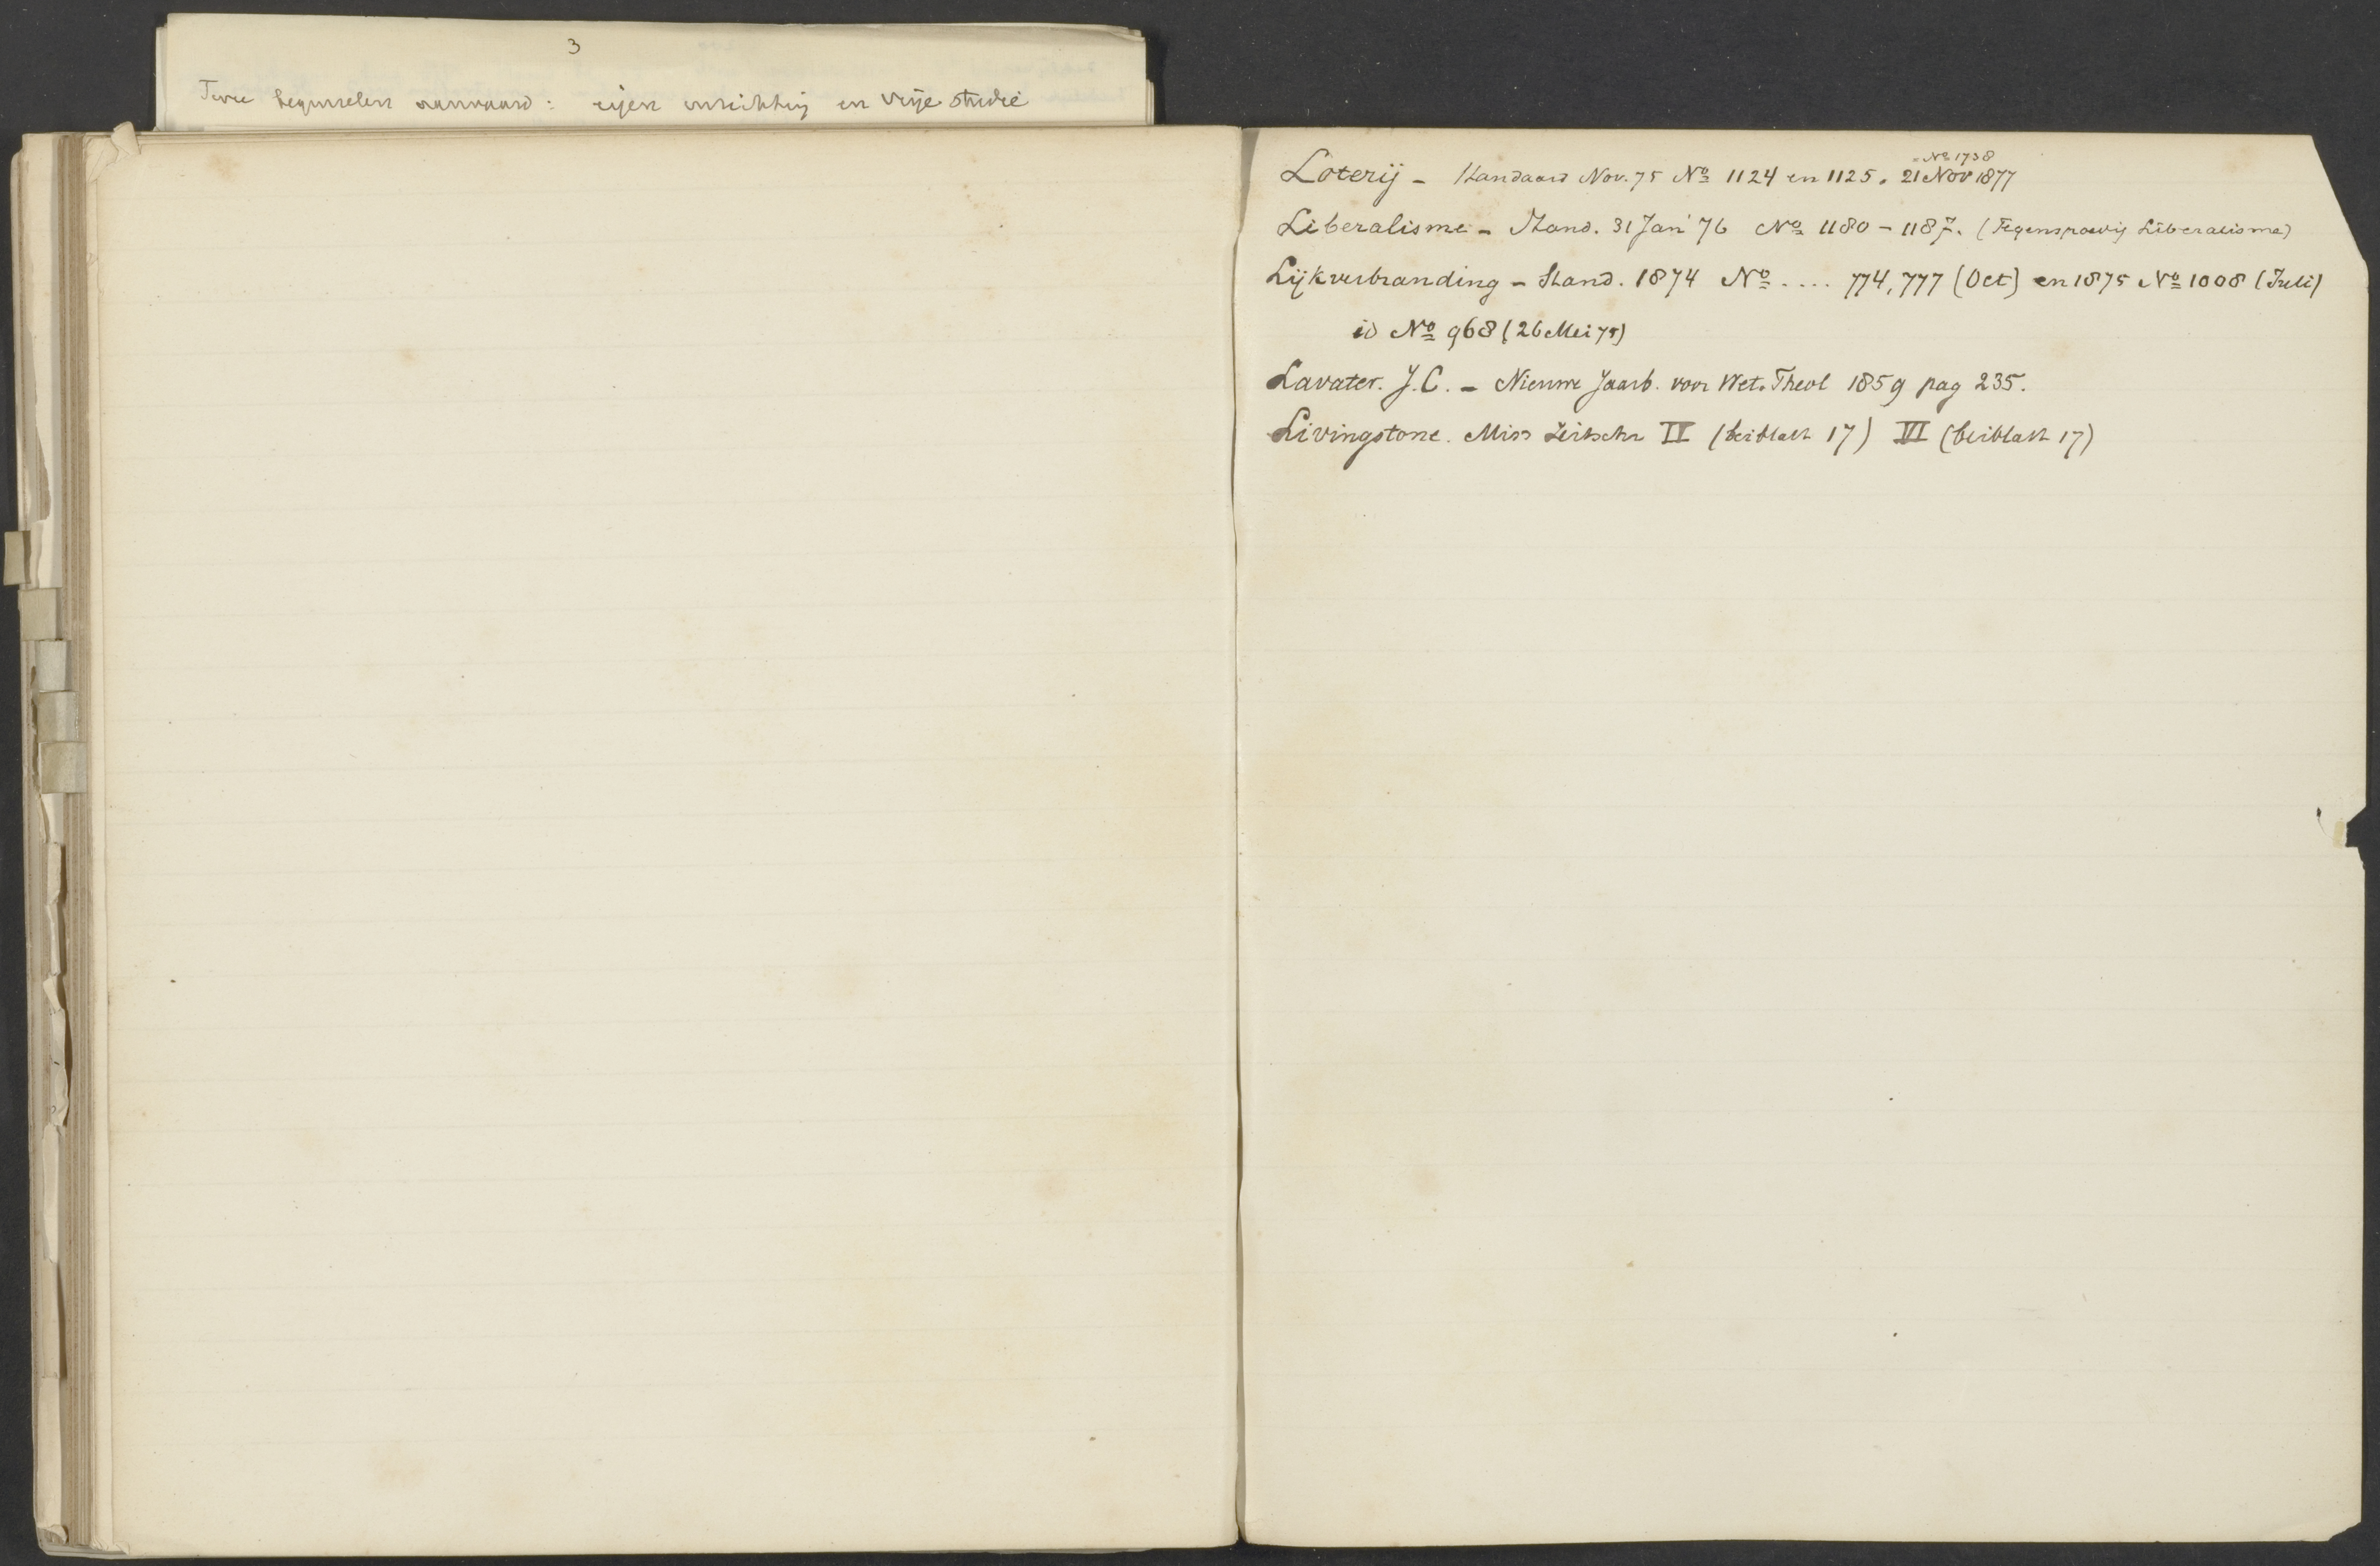 3
Twee beginselen aanvaard: eigen inrichting en vrije studie
Loterij - Standaard Nov. 75 No 1124 en 1125. 21 Nov 1877 No 1738
Liberalisme - Stand. 31 Jan '76 No 1180 - 1187. (Tegenspoedig Liberalisme)
Lijkverbranding - Stand. 1874 No .... 774, 777 (Oct) en 1875 No 1008 (Juli)
id No 968 (26 Mei 75)
Lavater. J.C. - Nieuwe Jaarb. voor Wet. Theol 1859 pag 235.
Livingstone. Miss Zeitschr II (beiblatt 17) VI (beiblatt 17)